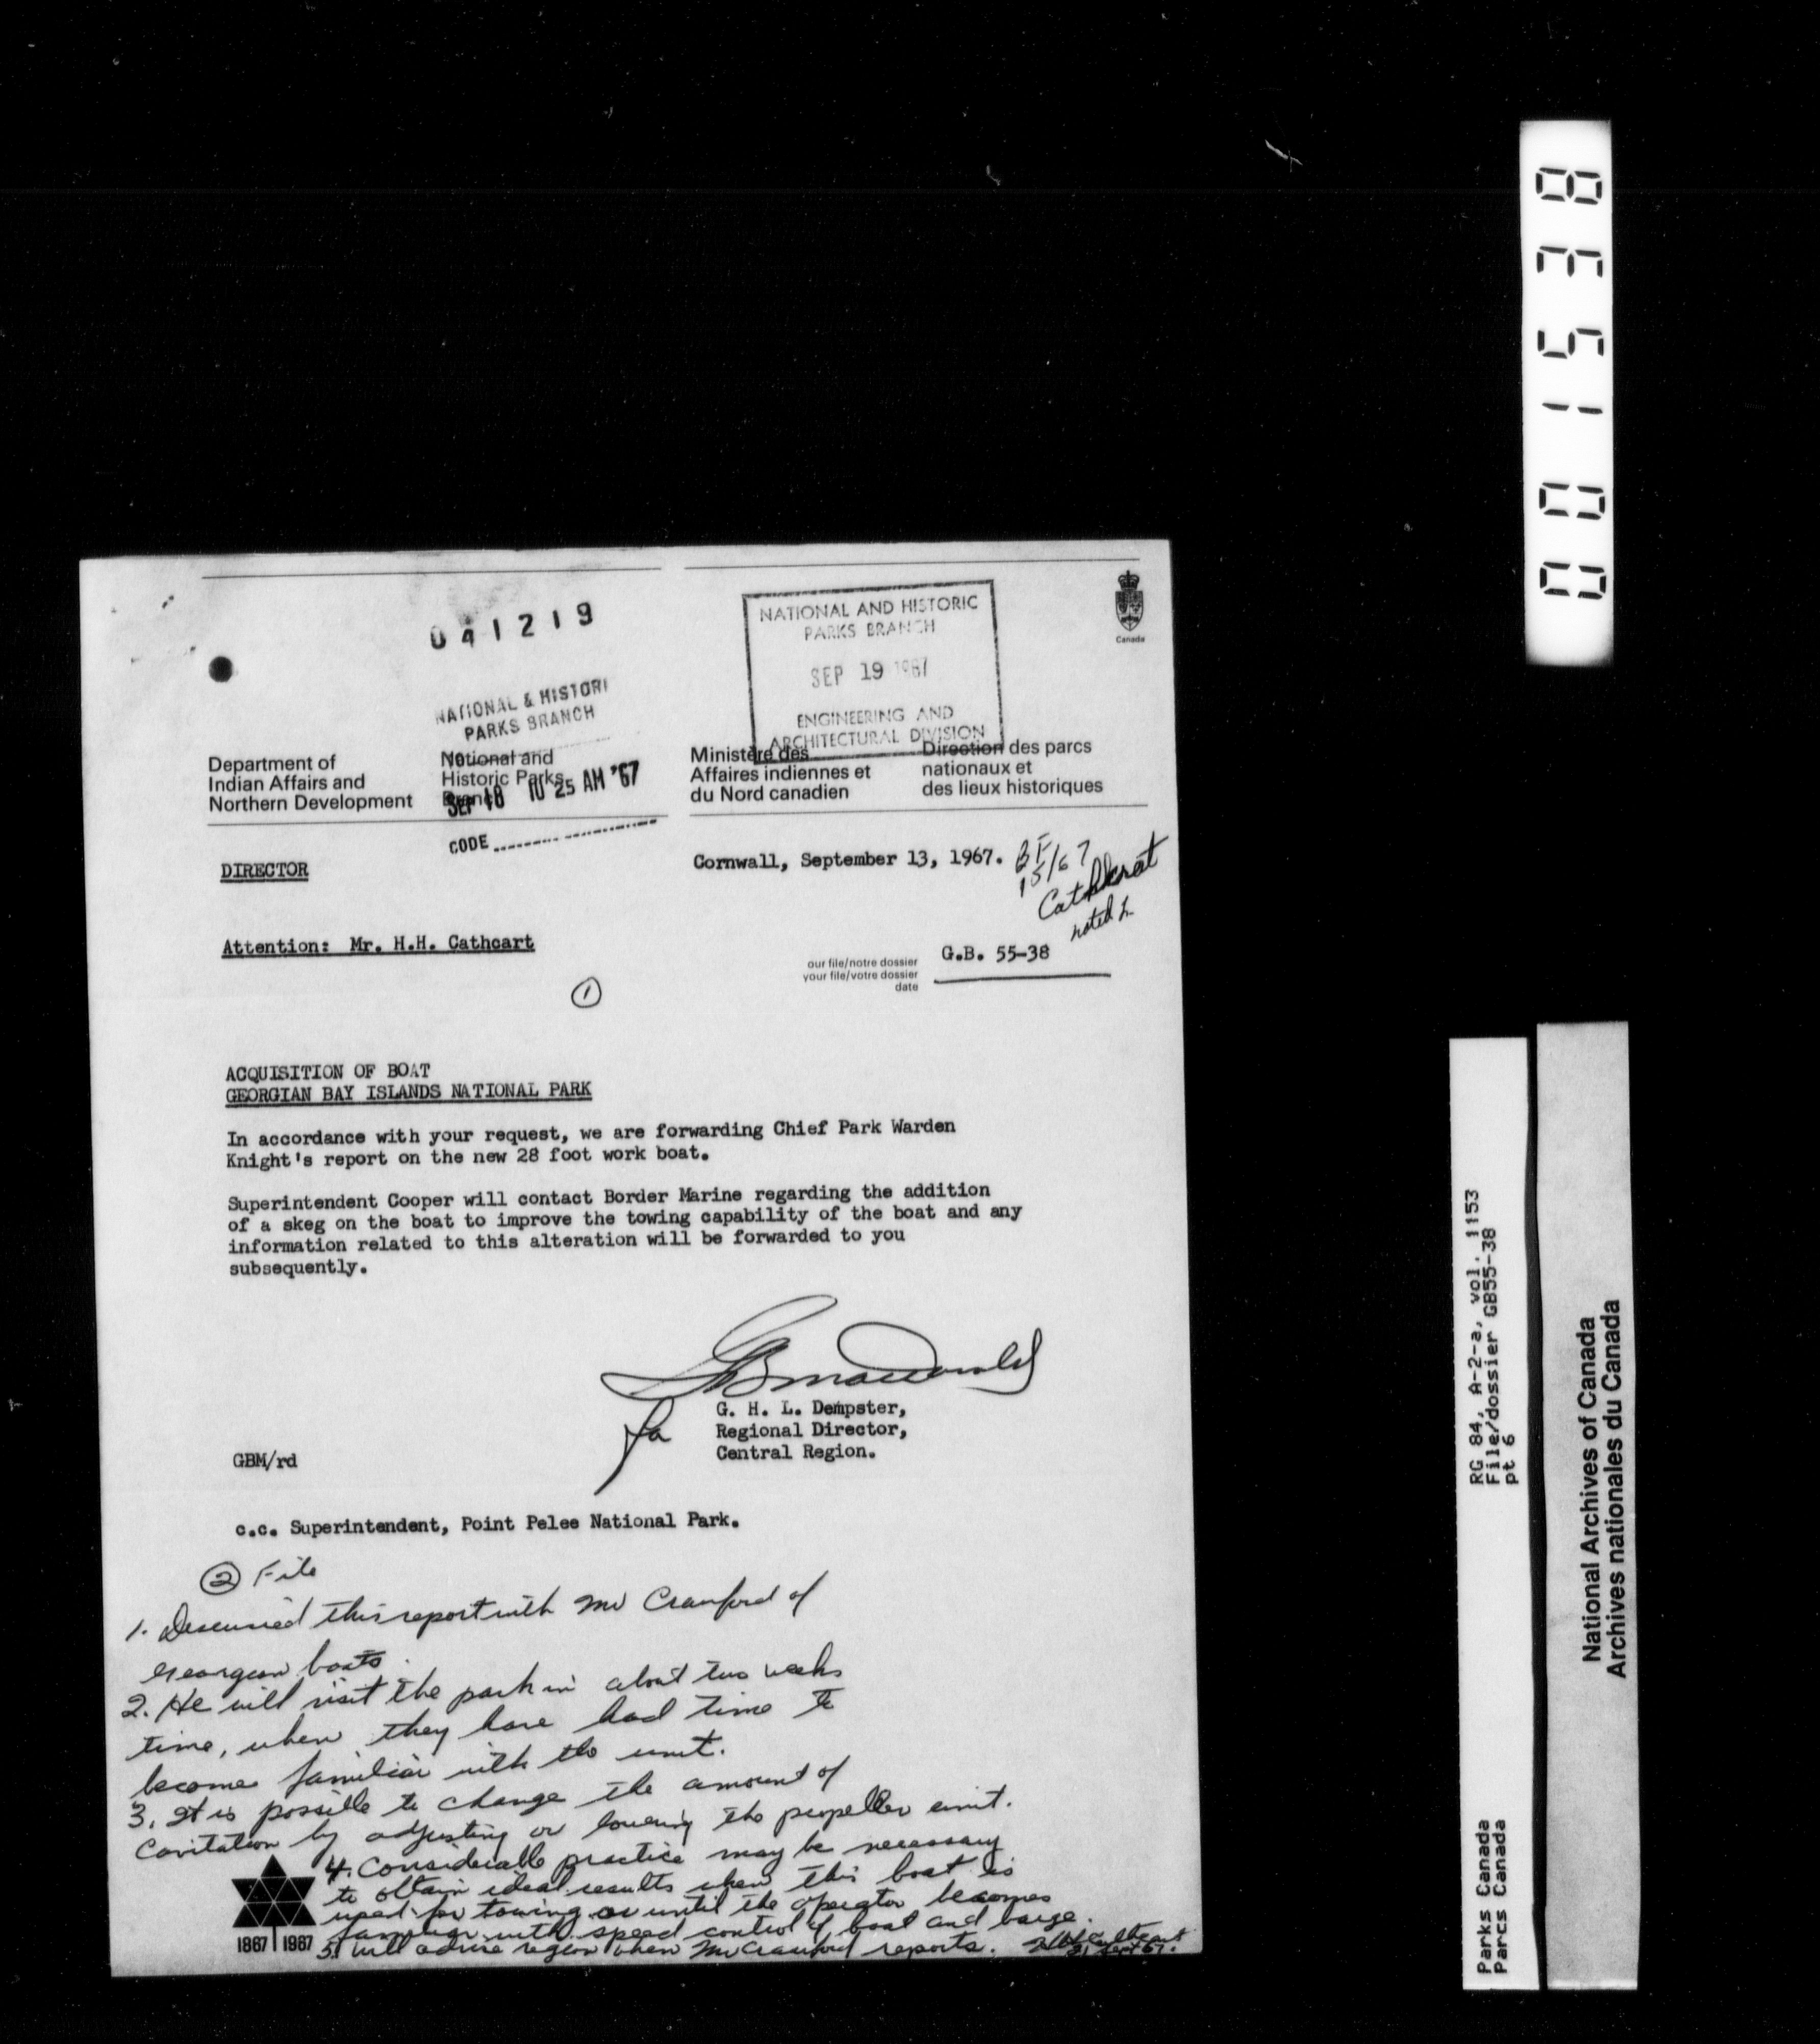 041219
NATIONAL & HISTORI
PARKS BRANCH
SEP 18 10 25 AM '67
CODE
NATIONAL AND HISTORIC
PARKS BRANCH
SEP 19 1967
ENGINEERING AND
ARCHITECTURAL DIVISION
Canada
Department of
Indian Affairs and
Northern Development
National and
Historic Parks
Branch
Ministère des
Affaires indiennes et
du Nord canadien
Direction des parcs
nationaux et
des lieux historiques
DIRECTOR
Cornwall, September 13, 1967.
BF
15/67
Cathcart
noted
Attention: Mr. H.H. Cathcart
our file/notre dossier G.B. 55-38
your file/votre dossier
date
1
ACQUISITION OF BOAT
GEORGIAN BAY ISLANDS NATIONAL PARK
In accordance with your request, we are forwarding Chief Park Warden
Knight's report on the new 28 foot work boat.
Superintendent Cooper will contact Border Marine regarding the addition
of a skeg on the boat to improve the towing capability of the boat and any
information related to this alteration will be forwarded to you
subsequently.
G. H. L. Dempster,
Regional Director,
Central Region.
GBM/rd
c.c. Superintendent, Point Pelee National Park.
2 File
1. Discussed this report with Mr Crawford of
Georgian boats.
2. He will visit the park in about two weeks
time, when they have had time to
become familiar with the unit.
3. It is possible to change the amount of
Cavitation by adjusting or lowering the propeller unit.
4. Considerable practice may be necessary
to obtain ideal results when this boat is
used for towing or until the operator becomes
familiar with speed control of boat and barge.
5. I will advise region when Mr Crawford reports. HH Cathcart
21 Sept 67.
1867 1967
001538
RG 84, A-2-a, vol. 1153
File/dossier GB55-38
pt 6
Parks Canada
Parcs Canada
National Archives of Canada
Archives nationales du Canada